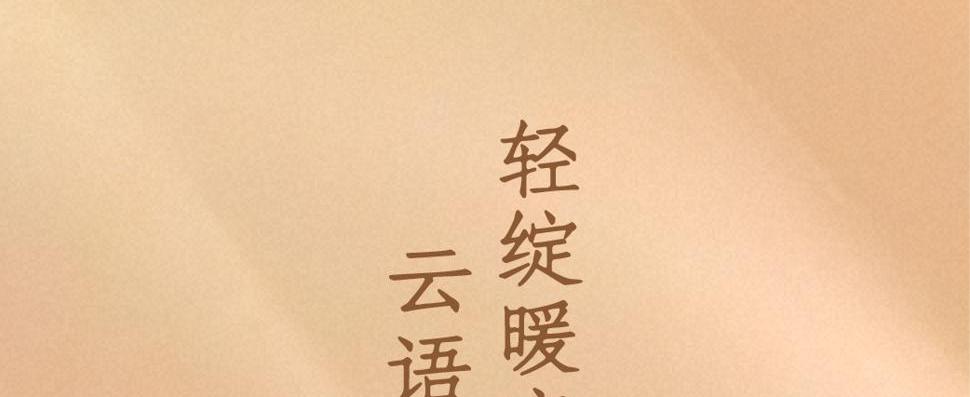 轻绽暖
云语